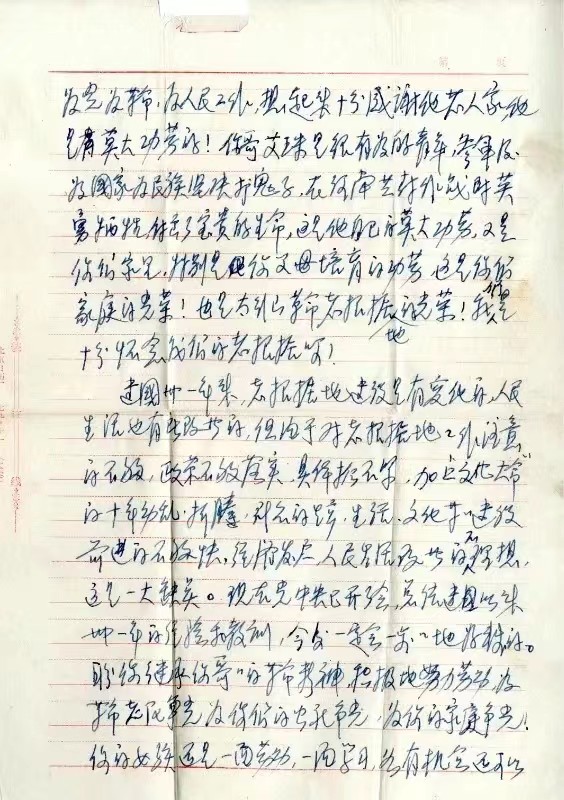 为党为革命，为人民工作，想起来十分感谢他老人家他
是有莫大功劳的！你哥艾珠是很有为的青年，参军后
为国家为民族坚决打鬼子，在河南兰封作战时英
勇牺牲，付出了宝贵的生命，这是他自己的莫大功劳，又是
你们弟兄，特别是你父母培育的功劳，这是你们
家庭的光荣！也是太行山革命老根据地的光荣！我们是
十分怀念我们的老根据地
建国卅一年来，老根据地建设是有变化的，人民
生活也有些改善的，但由于对老根据地工作注意
的不够，政策不够落实，具体指示不够，加上"文化大革命"
的十年动乱，折腾，社会的，生活、文化等建设
前进的不够快，经济发展人民生活改善的不理想，
这是一大缺笑。现在党中央已开始，总结建国以来
卅一年的经验和教训，今后一定会一步步地好转的。
盼你继承你哥哥的革命精神，积极地努力劳动为
革命老区争光，为你们的争光，为你的家庭争光！
你的女孩还是一面劳动，一面学习，有机会还可以